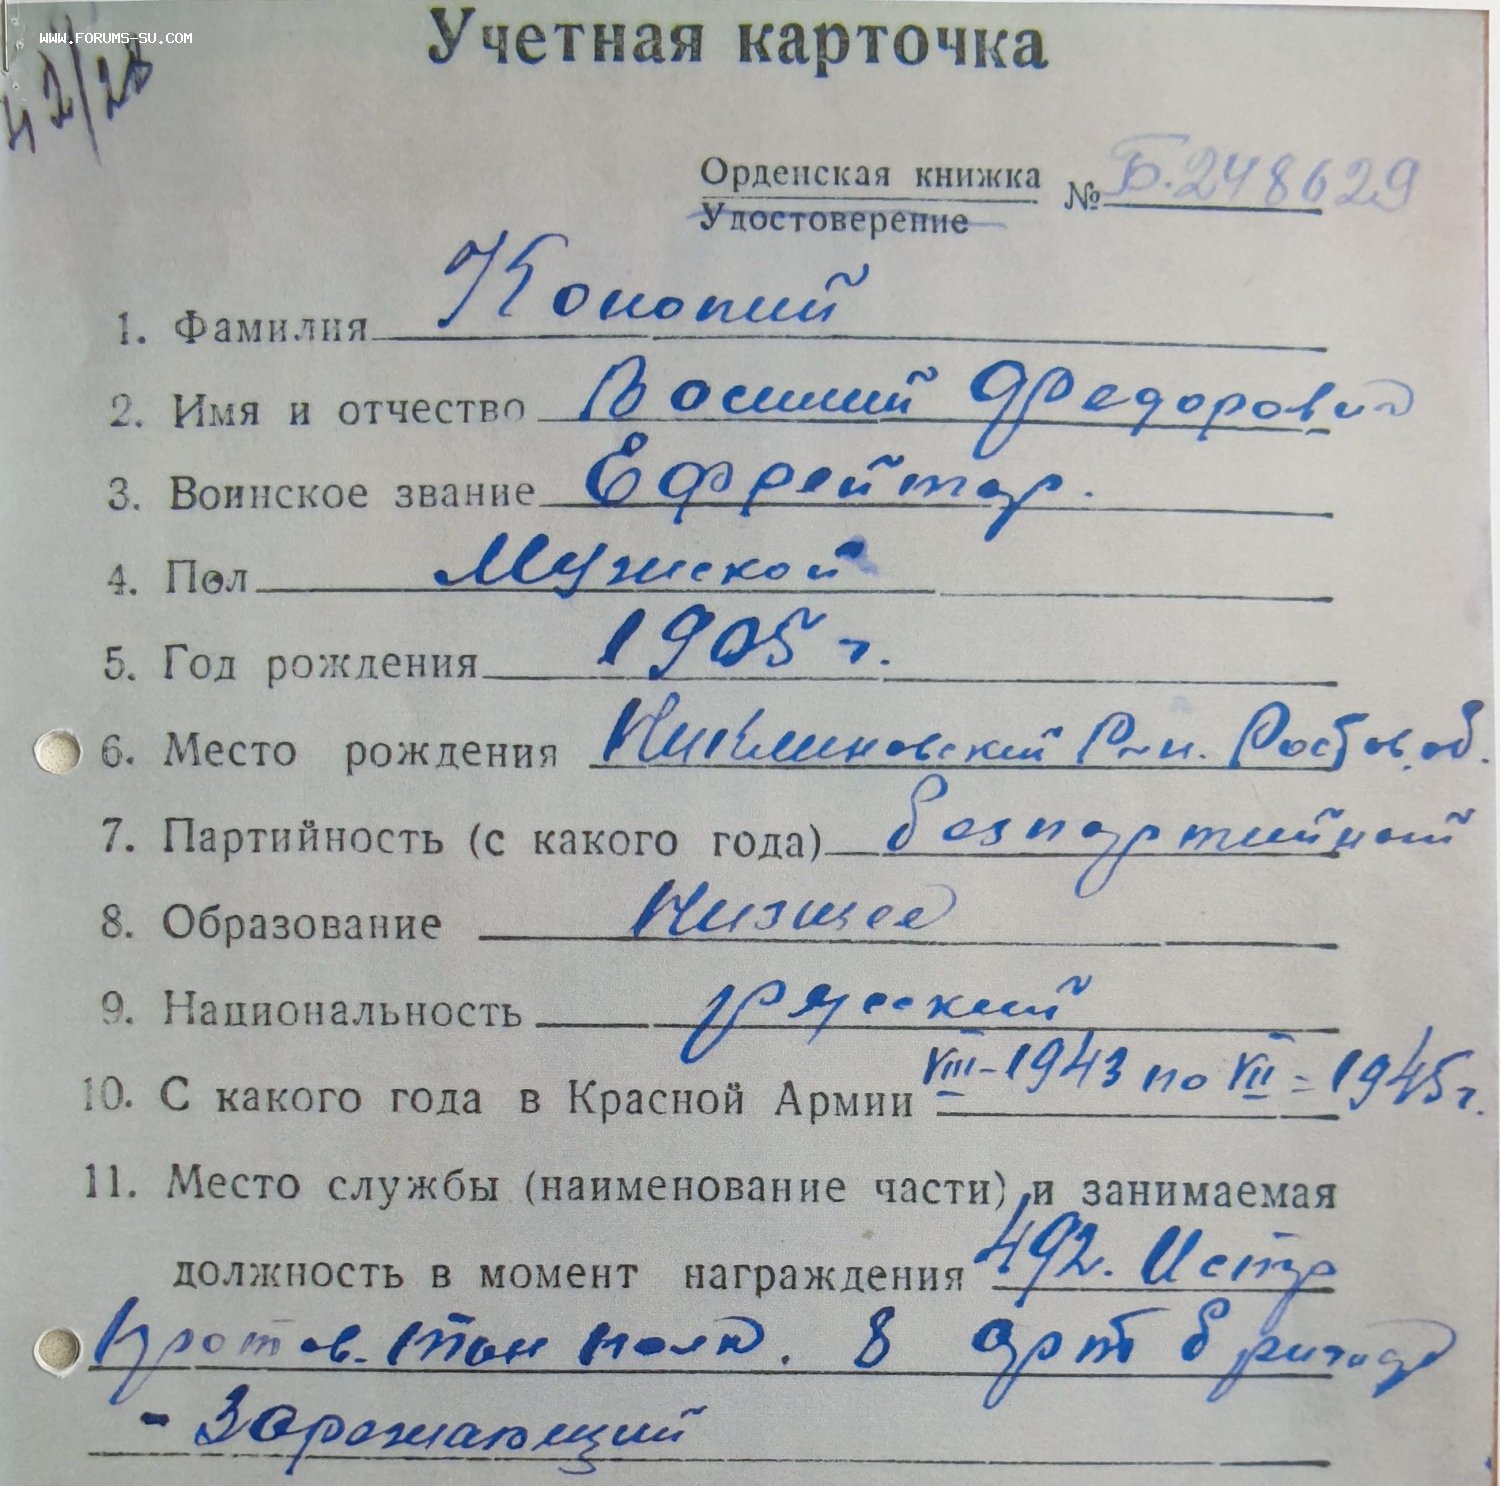 WWW.FORUMS-SU.COM
42/28
Учетная карточка
Орденская книжка
Удостоверение
№ Б.248629
1. Фамилия Конопий
2. Имя и отчество Василий Федорович
3. Воинское звание Ефрейтор.
4. Пол Мужской
5. Год рождения 1905 г.
6. Место рождения Неклиновский р-н. Ростов. об.
7. Партийность (с какого года) безпартийный
8. Образование Низшее
9. Национальность русский
10. С какого года в Красной Армии VIII-1943 по VII-1945г.
11. Место службы (наименование части) и занимаемая
должность в момент награждения 492. Истр
Против. тан полк. 8 арт бригада
- Заряжающий